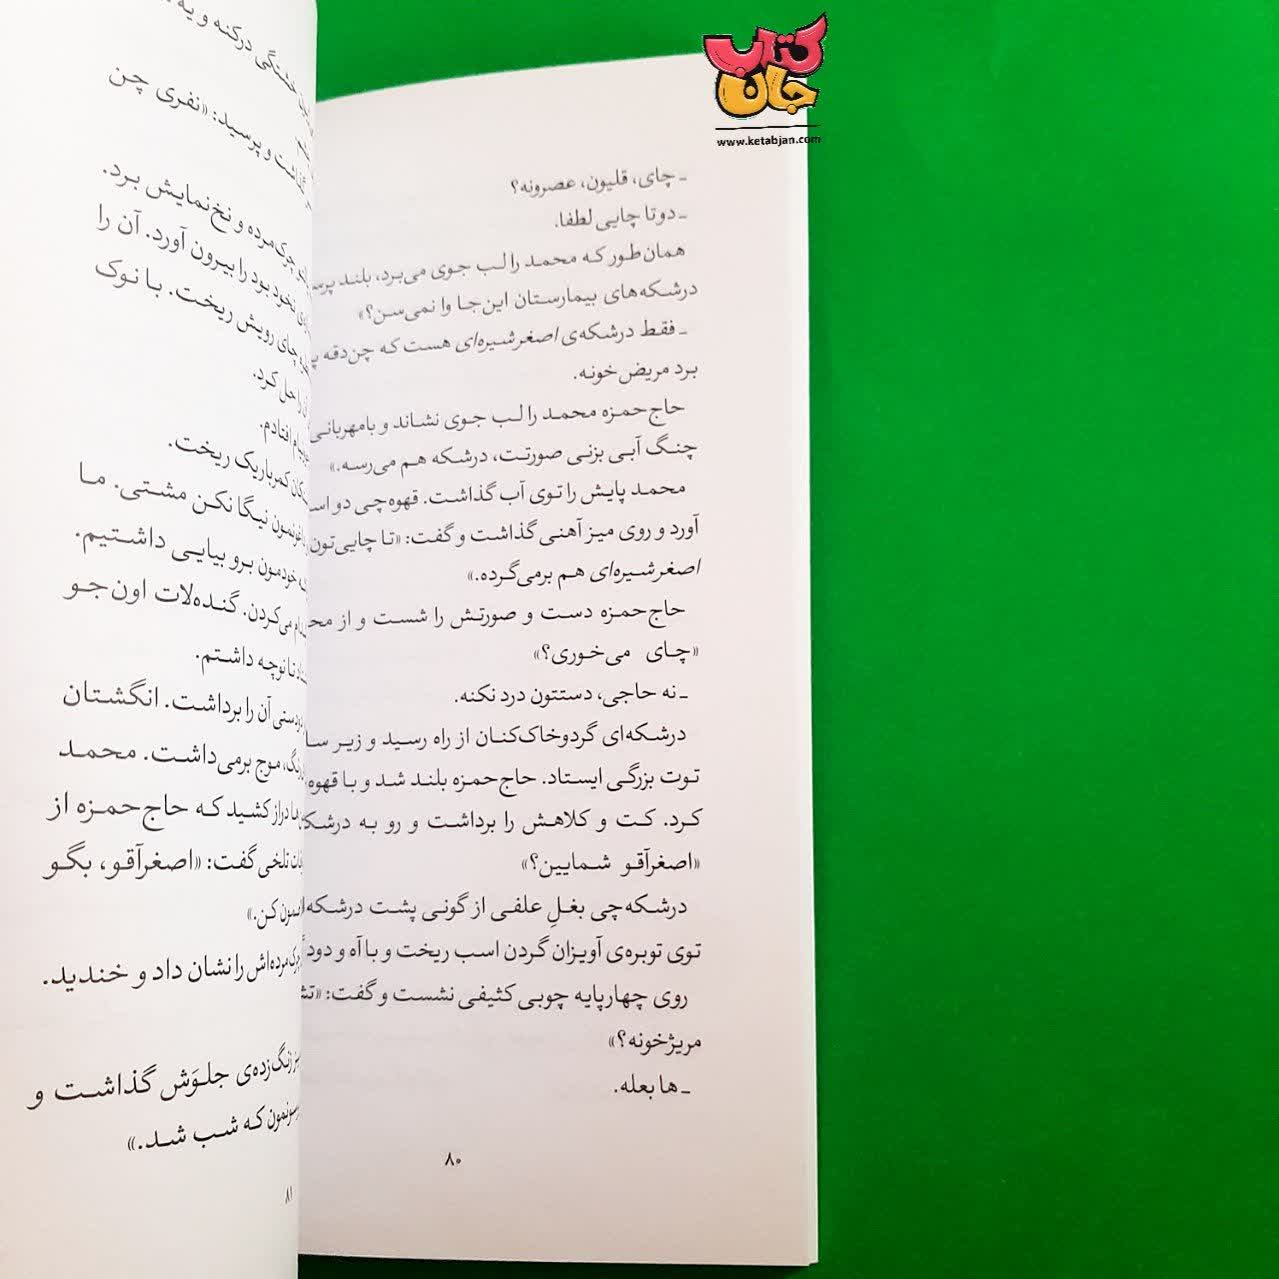 کتاب جان
www.ketabjan.com
ـ چای، قلیون، عصرونه؟
ـ دوتا چایی لطفا.
همان‌طور که محمد را لب جوی می‌برد، بلند
درشکه‌های بیمارستان این‌جا وا نمی‌سن؟»
ـ فقط درشکه‌ی اصغرشیره‌ای هست که چن‌دقه
برد مریض‌خونه.
حاج‌حمزه محمد را لب جوی نشاند و بامهربانی
چنگ آبی بزنی صورتت، درشکه هم می‌رسه.»
محمد پایش را توی آب گذاشت. قهوه‌چی دو
آورد و روی میز آهنی گذاشت و گفت: «تا چایی‌تون
اصغرشیره‌ای هم برمی‌گرده.»
حاج‌حمزه دست و صورتش را شست و از
«چای می‌خوری؟»
ـ نه حاجی، دستتون درد نکنه.
درشکه‌ای گردوخاک‌کنان از راه رسید و زیر
توت بزرگی ایستاد. حاج‌حمزه بلند شد و با
کرد. کت و کلاهش را برداشت و رو به
«اصغرآقو شمایین؟»
درشکه‌چی بغلِ علفی از گونی پشت
توی توبره‌ی آویزان گردن اسب ریخت و با آه و دود
روی چهارپایه چوبی کثیفی نشست و گفت:
مریژخونه؟»
ـ ها بعله.
۸۰
خشتگی درکنه و یه
و پرسید: «نفری چن
چرک‌مرده و نخ‌نمایش برد.
نخود بود را بیرون آورد. آن را
چای رویش ریخت. با نوک
را حل کرد.
افتادم.
کمرباریک ریخت.
نیگا نکن مشتی. ما
خودمون برو بیایی داشتیم.
می‌کردن. گنده‌لات اون‌جو
تا نوچه داشتم.
آن را برداشت. انگشتان
موج برمی‌داشت. محمد
دراز کشید که حاج‌حمزه از
تلخی گفت: «اصغرآقو، بگو
کن.»
را نشان داد و خندید.
زنگ‌زده‌ی جلوَش گذاشت و
که شب شد.»
۸۱